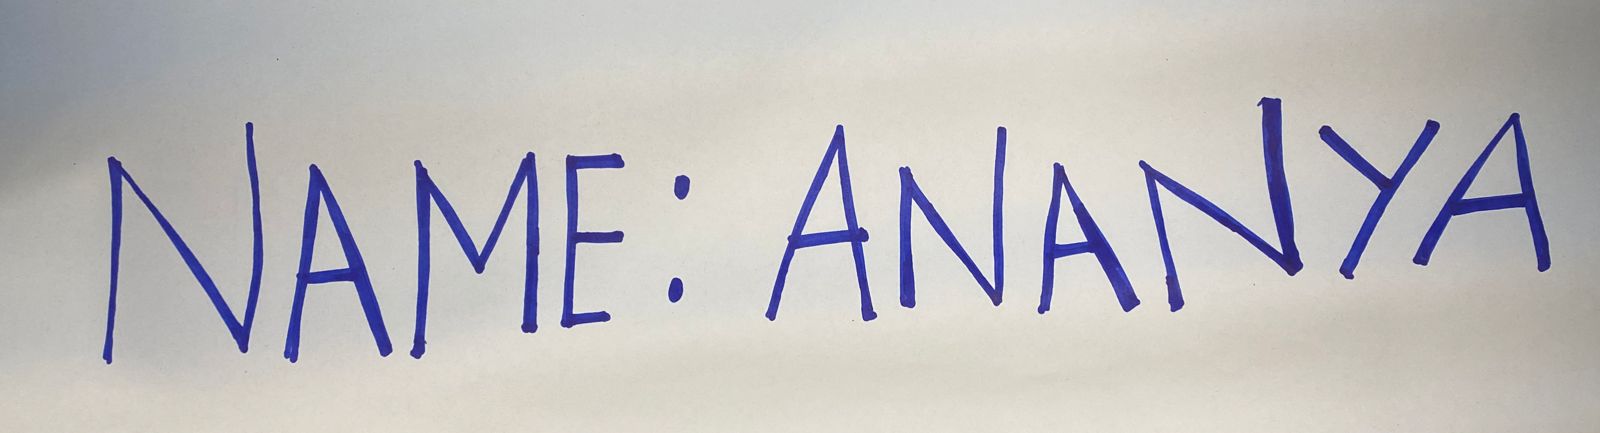 NAME: ANANYA